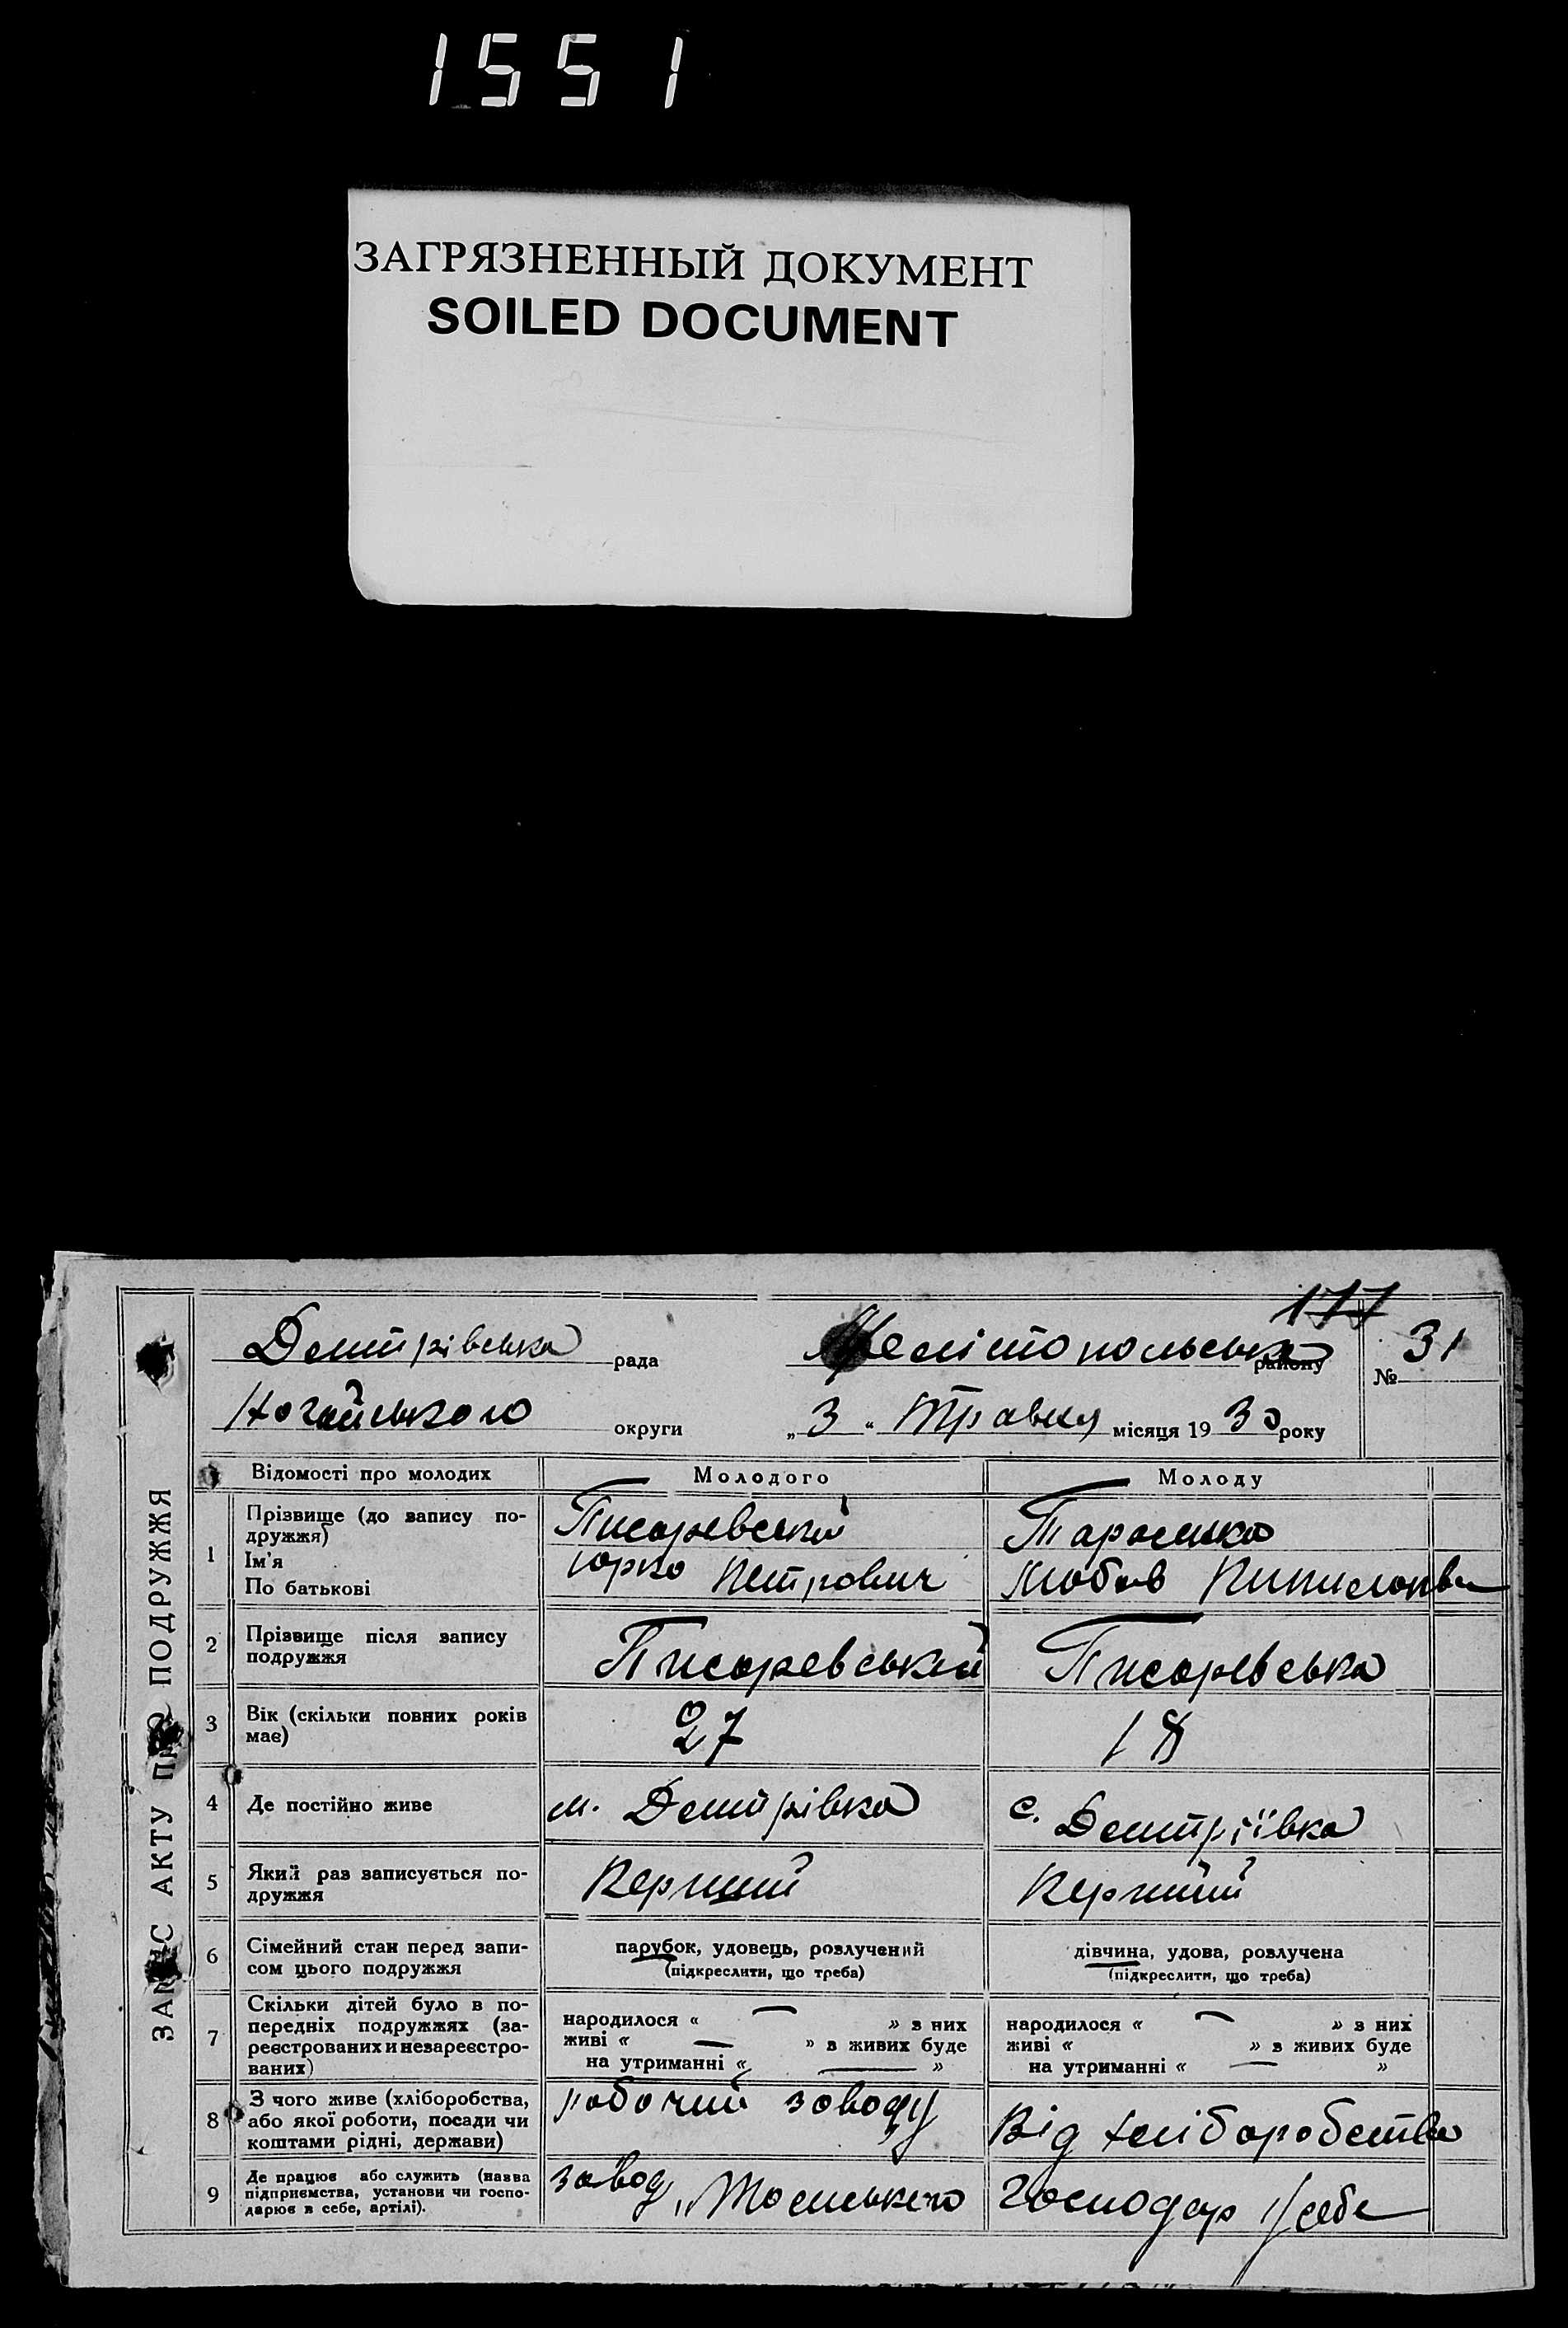 1551
ЗАГРЯЗНЕННЫЙ ДОКУМЕНТ
SOILED DOCUMENT
177
ЗАПИС АКТУ ПРО ПОДРУЖЖЯ
Демтрівська рада Мелітопольська району № 31
Ногайського округи „ 3 “ Травня місяця 19 30 року
Відомості про молодих Молодого Молоду
1 Прізвище (до запису по-
дружжя)
Ім'я
По батькові
Писаревский
Юрко Петрович
Тарасенко
Любов
2 Прізвище після запису
подружжя
Писаревський Писаревська
3 Вік (скільки повних років
має)
27 18
4 Де постійно живе м. Демтрівка с. Демтріївка
5 Який раз записується по-
дружжя
Перший Перший
6 Сімейний стан перед запи-
сом цього подружжя
парубок, удовець, розлучений
(підкреслити, що треба)
дівчина, удова, розлучена
(підкреслити, що треба)
7 Скільки дітей було в по-
передніх подружжях (за-
реєстрованих и незареєстро-
ваних)
народилося « — » з них
живі « — » з живих буде
на утриманні « — »
народилося « — » з них
живі « » з живих буде
на утриманні « — »
8 З чого живе (хліборобства,
або якої роботи, посади чи
коштами рідні, держави)
робочий заводу
Від хліборобства
9 Де працює або служить (назва
підприємства, установи чи госпо-
дарює в себе, артілі).
завод
господар у себе